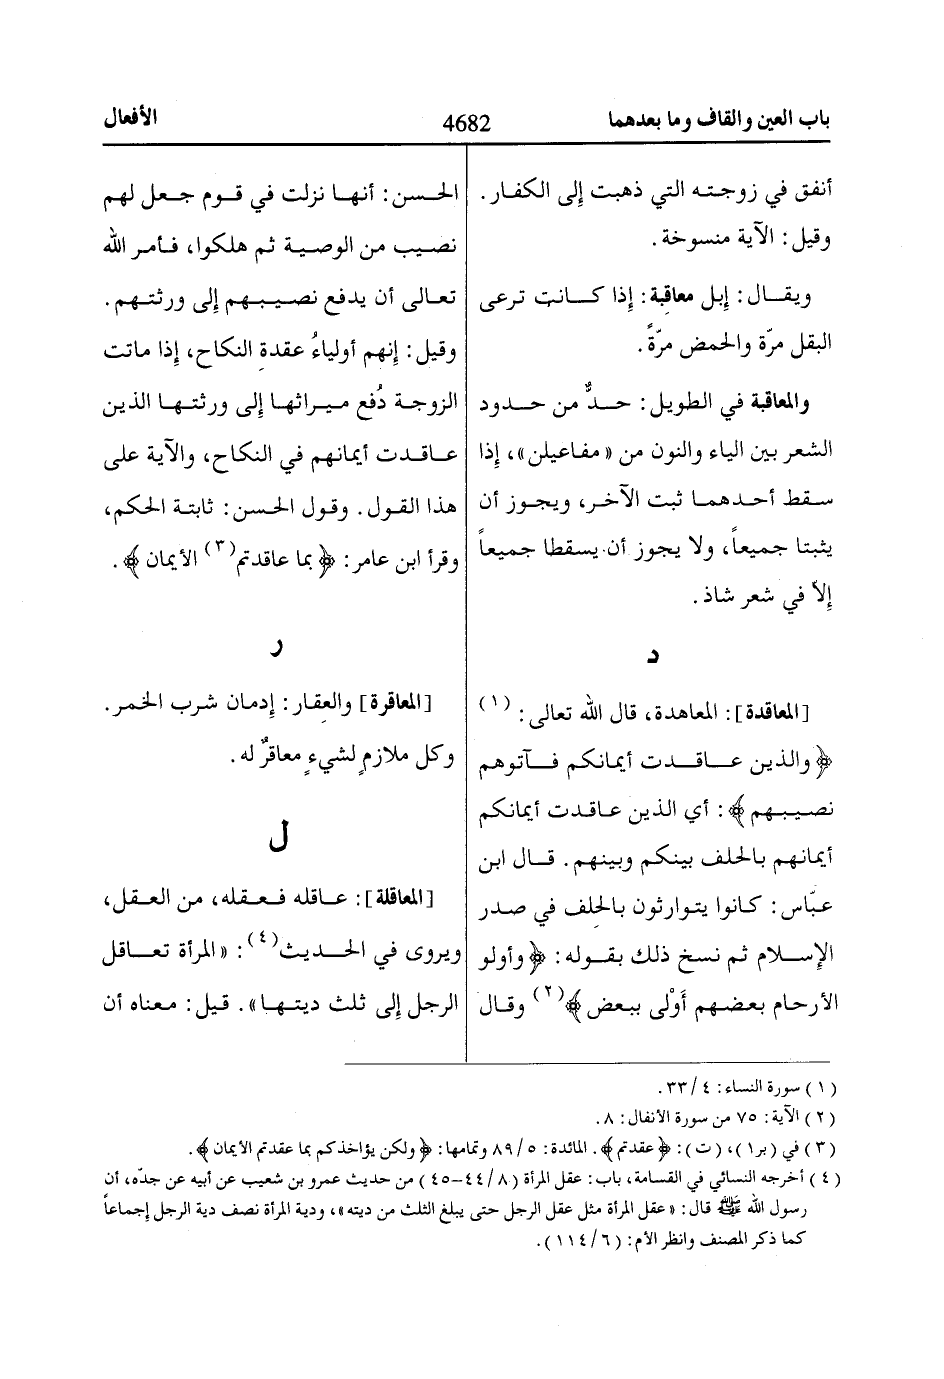 باب العين والقاف وما بعدهما 4682 الأفعال
أنفق في زوجته التي ذهبت إلى الكفار.
وقيل: الآية منسوخة.
ويقال: إبل معاقبة: إذا كانت ترعى
البقل مرّة والحمض مرّةً.
والمعاقبة في الطويل: حدٌّ من حدود
الشعر بين الياء والنون من «مفاعيلن»، إذا
سقط أحدهما ثبت الآخر، ويجوز أن
يثبتا جميعاً، ولا يجوز أن يسقطا جميعاً
إلاّ في شعر شاذ.
د
[المعاقدة]: المعاهدة، قال الله تعالى: (١)
﴿والذين عاقدت أيمانكم فآتوهم
نصيبهم﴾: أي الذين عاقدت أيمانكم
أيمانهم بالحلف بينكم وبينهم. قال ابن
عبّاس: كانوا يتوارثون بالحلف في صدر
الإسلام ثم نسخ ذلك بقوله: ﴿وأولو
الأرحام بعضهم أَوْلى ببعض﴾(٢) وقال
الحسن: أنها نزلت في قوم جعل لهم
نصيب من الوصية ثم هلكوا، فأمر الله
تعالى أن يدفع نصيبهم إلى ورثتهم.
وقيل: إنهم أولياءُ عقدة النكاح، إذا ماتت
الزوجة دُفع ميراثها إلى ورثتها الذين
عاقدت أيمانهم في النكاح، والآية على
هذا القول. وقول الحسن: ثابتة الحكم،
وقرأ ابن عامر: ﴿بما عاقدتم(٣) الأيمان﴾.
ر
[المعاقرة] والعقار: إدمان شرب الخمر.
وكل ملازمٍ لشيءٍ معاقرٌ له.
ل
[المعاقلة]: عاقله فعقله، من العقل،
ويروى في الحديث(٤): «المرأة تعاقل
الرجل إلى ثلث ديتها». قيل: معناه أن
(١) سورة النساء: ٤/ ٣٣.
(٢) الآية: ٧٥ من سورة الأنفال: ٨.
(٣) في (بر١)، (ت): ﴿عقدتم﴾. المائدة: ٥/ ٨٩ وتمامها: ﴿ولكن يؤاخذكم بما عقدتم الأيمان﴾.
(٤) أخرجه النسائي في القسامة، باب: عقل المرأة (٨/ ٤٤-٤٥) من حديث عمرو بن شعيب عن أبيه عن جدّه، أن
رسول الله ﷺ قال: «عقل المرأة مثل عقل الرجل حتى يبلغ الثلث من ديته»، ودية المرأة نصف دية الرجل إجماعاً
كما ذكر المصنف وانظر الأم: (٦/ ١١٤).